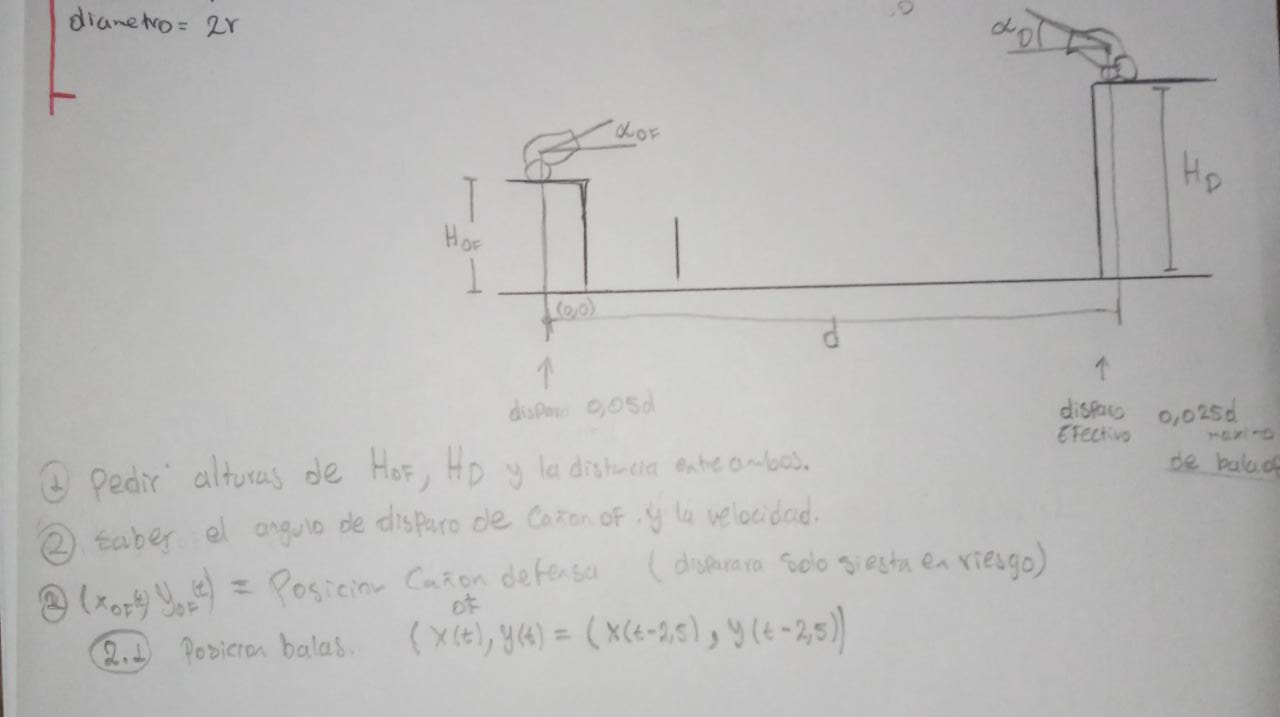 diametro = 2r
αD
αOF
HOF
HD
(0,0)
d
disparo 0,05d
disparo 0,025d
Efectivo maximo
de balaof
① Pedir alturas de HOF, HD y la distancia entre ambos.
② saber el angulo de disparo de Cañon of. y la velocidad.
② (xOF(t) yOF(t)) = Posicion Cañon defensa (disparara solo si esta en riesgo)
OF
2.1 Posicion balas. (x(t), y(t) = (x(t-2,5), y(t-2,5))